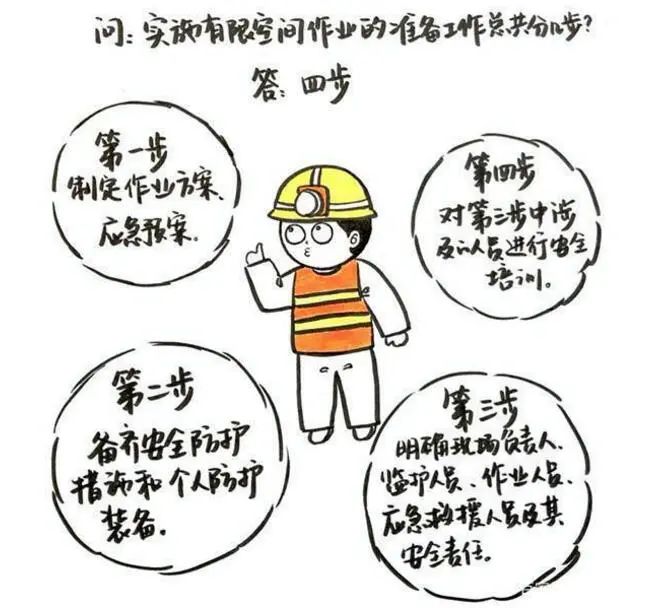 问：实施有限空间作业的准备工作总共分几步？
答：四步
第一步
制定作业方案、
应急预案。
第二步
备齐安全防护
措施和个人防护
装备。
第三步
明确现场负责人、
监护人员、作业人员、
应急救援人员及其
安全责任。
第四步
对第三步中涉
及的人员进行安全
培训。